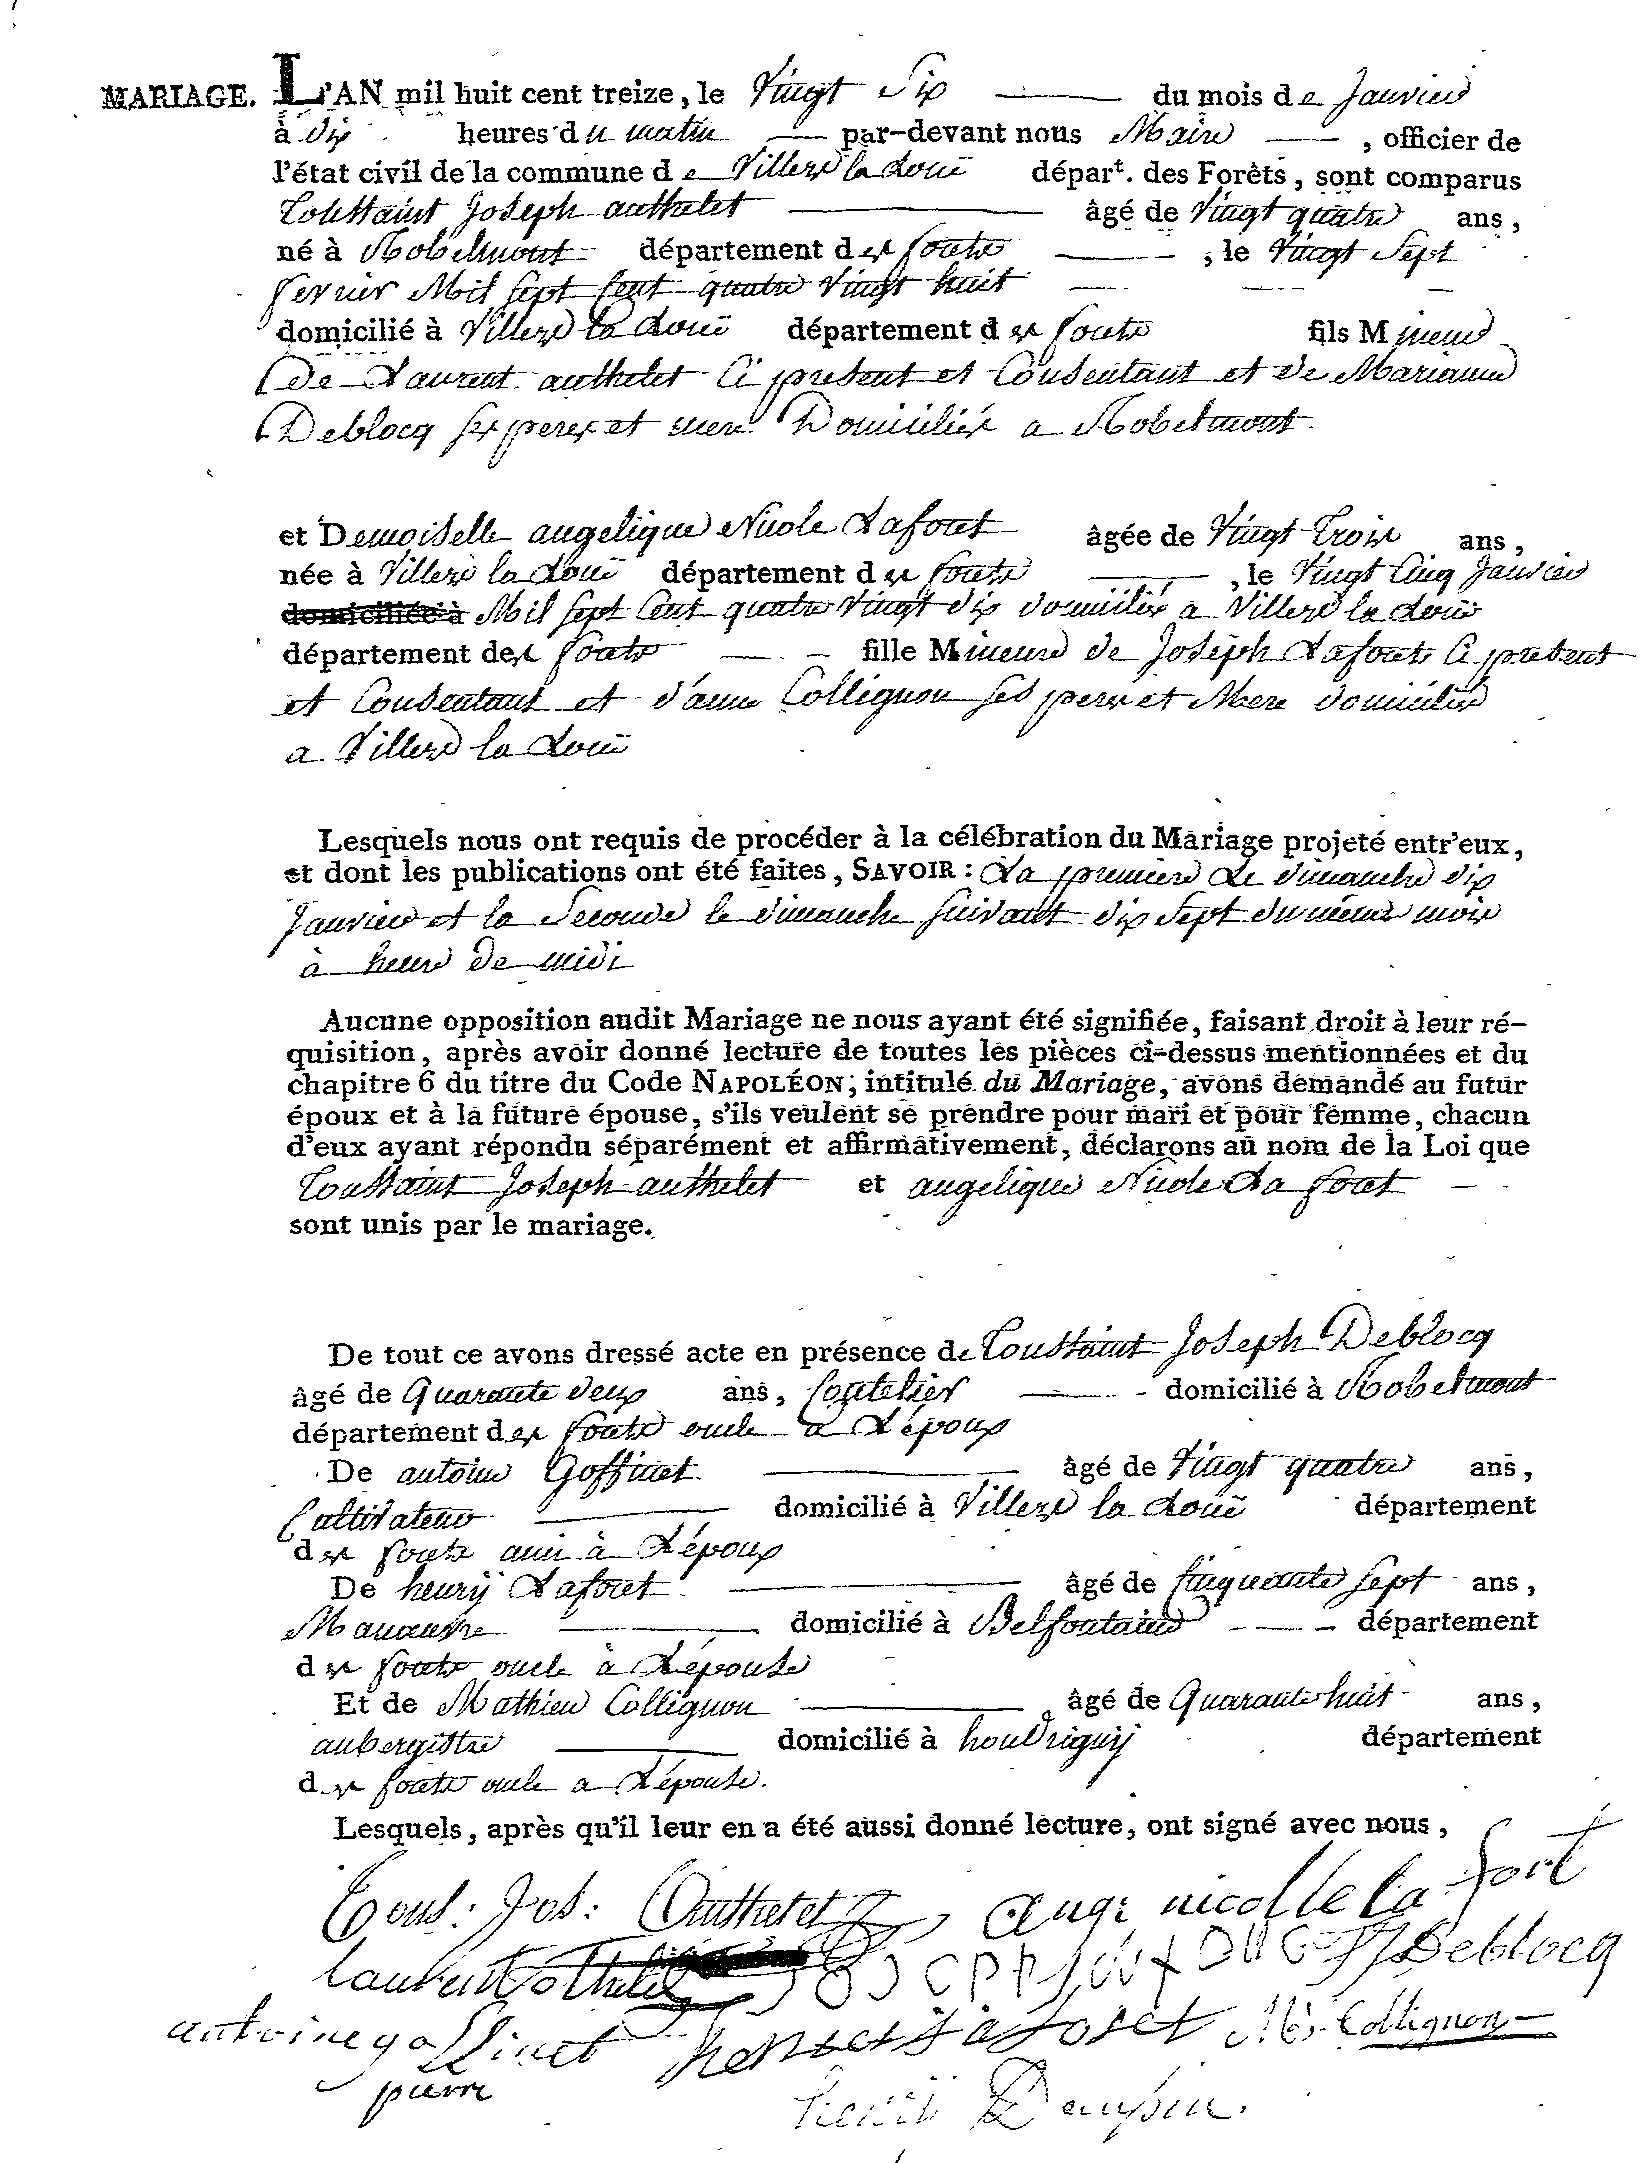 MARIAGE. L'AN mil huit cent treize, le Vingt Six du mois de Janvier
à dix heures du matin par-devant nous Maire, officier de
l'état civil de la commune de Villers la Loüeépart. des Forêts, sont comparus
Toussaint Joseph authelet âgé de Vingt quatre ans,
né à Robelmont département des forets, le Vingt Sept
fevrier Mil Sept Cent quatre Vingt huit
domicilié à Villers la Loüe département des forets fils Mineur
De Laurent authelet Ci present et Consentant et de Marianne
Deblocq ses peres et mere Domiciliés a Robelmont
et Demoiselle angelique Nicole Laforet âgée de Vingt Trois ans,
née à Villers la Loüe département des forets, le Vingt Cinq Janvier
domiciliée à Mil Sept Cent quatre Vingt dix domiciliés a Villers la Loüe
département des forets fille Mineure de Joseph Laforets Ci present
et Consentant et d'anne Collignon ses peres et Mere domiciliés
a Villers la Loüe
Lesquels nous ont requis de procéder à la célébration du Mariage projeté entr'eux,
et dont les publications ont été faites, SAVOIR : La premiere Le dimanche dix
Janvier et la Seconde le dimanche suivant dix Sept du même mois
à heure de midi
Aucune opposition audit Mariage ne nous ayant été signifiée, faisant droit à leur ré-
quisition, après avoir donné lecture de toutes les pièces ci-dessus mentionnées et du
chapitre 6 du titre du Code NAPOLÉON, intitulé du Mariage, avons demandé au futur
époux et à la future épouse, s'ils veulent se prendre pour mari et pour femme, chacun
d'eux ayant répondu séparément et affirmativement, déclarons au nom de la Loi que
Toussaint Joseph authelet et angelique Nicole La foret
sont unis par le mariage.
De tout ce avons dressé acte en présence de Toussaint Joseph Deblocq
âgé de Quarante deux ans, Coutelier domicilié à Robelmont
département des forets oncle a L'époux
De antoine Goffinet âgé de Vingt quatre ans,
Cultivateur domicilié à Villers la Loüe département
des forets ami à L'époux
De henrÿ Laforet âgé de Cinquante Sept ans,
Manœuvre domicilié à Belfontaine département
des forets oncle à L'épouse
Et de Mathieu Collignon âgé de Quarante huit ans,
aubergiste domicilié à houdrignÿ département
des forets oncle a L'épouse.
Lesquels, après qu'il leur en a été aussi donné lecture, ont signé avec nous,
Tous: Jos: Authelet, Ange nicolle la foret
Laurent othelet Deblocq
antoine goffinet henri Laforet M. Collignon
pierre
henrÿ Daupin.